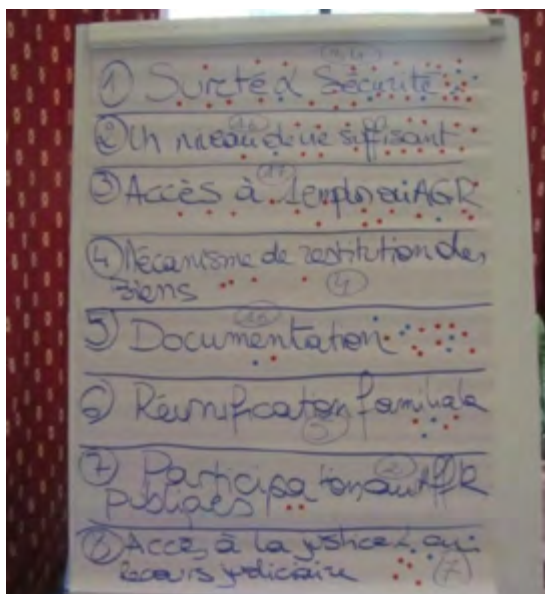 ① Sureté & Sécurité
② Un niveau de vie suffisant
③ Accès à l'emploi AGR
④ Mécanisme de restitution des
Biens ④
5 Documentation
⑥ Réunification familiale
⑦ Participation aux Aff
publiques
⑧ Accès à la justice
Recours judiciaire ⑦